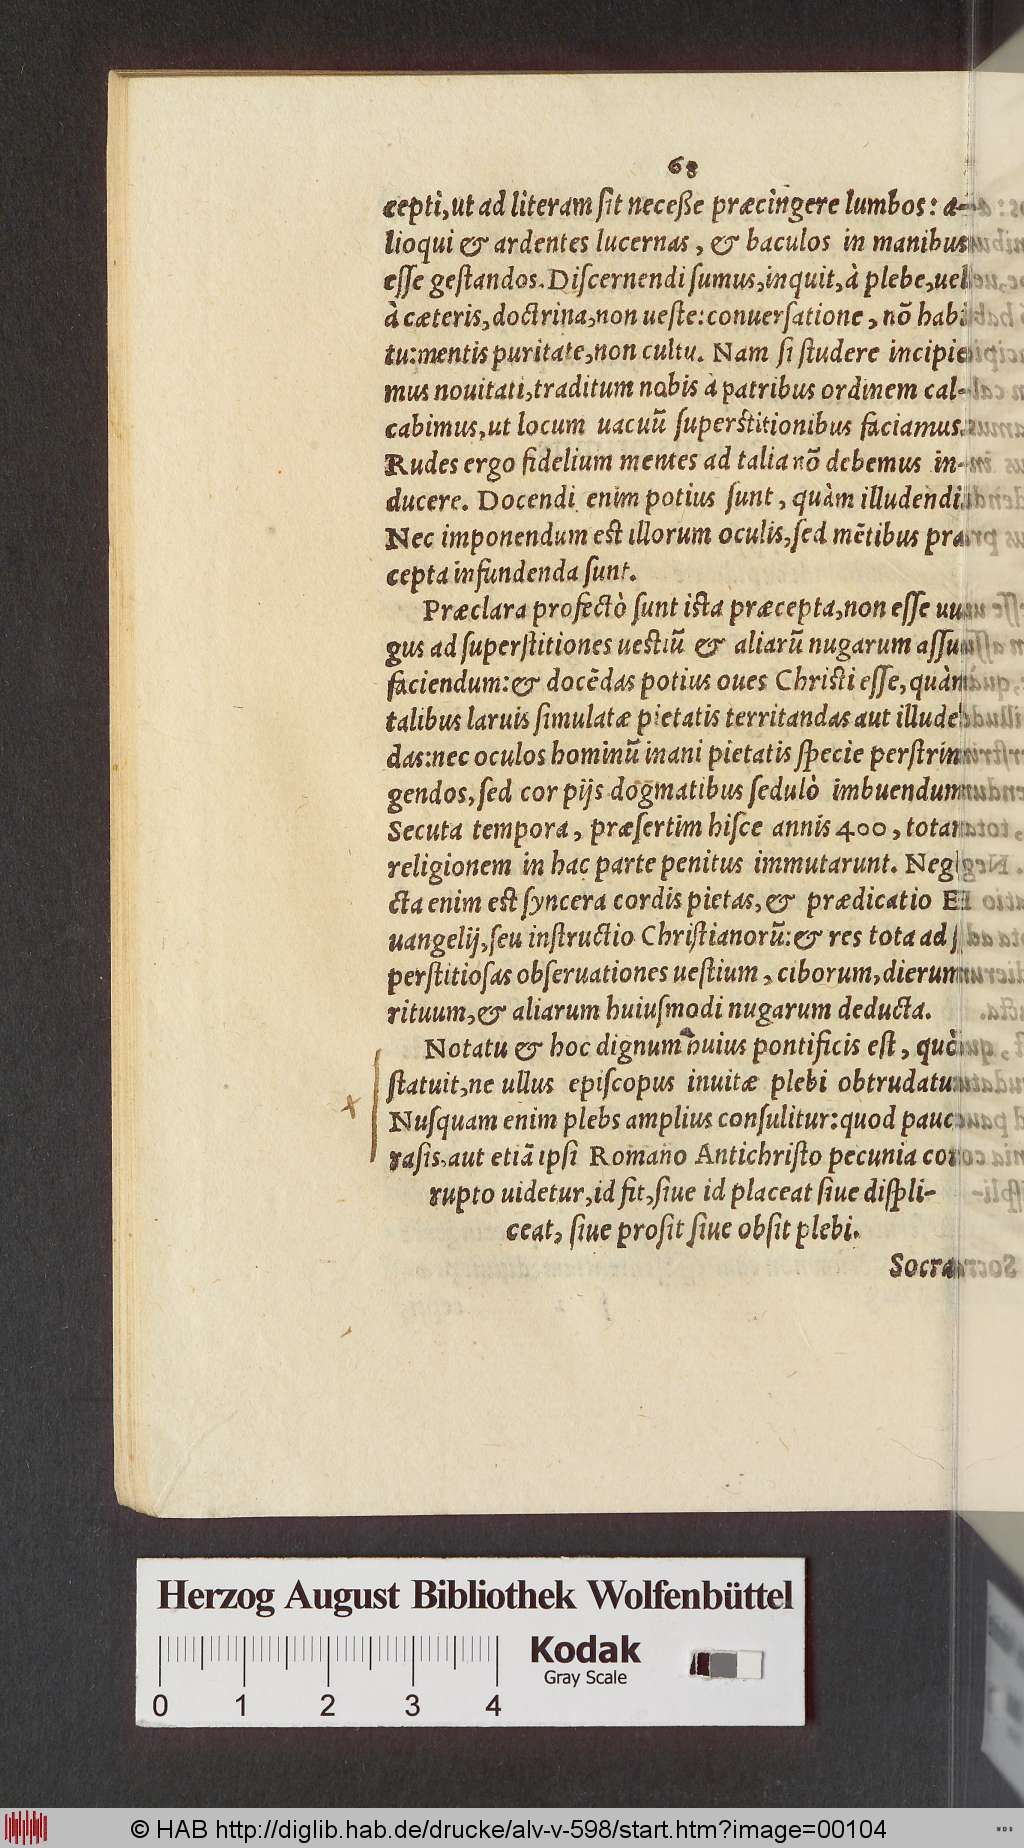 68
cepti, ut ad literam sit neceße præcingere lumbos: a-
lioqui & ardentes lucernas, & baculos in manibus
esse gestandos. Discernendi sumus, inquit, à plebe, uel
à cæteris, doctrina, non ueste: conuersatione, nõ habi
tu: mentis puritate, non cultu. Nam si studere incipie
mus nouitati, traditum nobis à patribus ordinem cal-
cabimus, ut locum uacuũ superstitionibus faciamus.
Rudes ergo fidelium mentes ad talia nõ debemus in-
ducere. Docendi enim potius sunt, quàm illudendi.
Nec imponendum est illorum oculis, sed mẽtibus præ
cepta infundenda sunt.
Præclara profectò sunt ista præcepta, non esse
gus ad superstitiones uestiũ & aliarũ nugarum
faciendum: & docẽdas potius oues Christi esse, quàm
talibus laruis simulatæ pietatis territandas aut
das: nec oculos hominũ inani pietatis specie perstrin
gendos, sed cor pijs dogmatibus sedulò imbuendum.
Secuta tempora, præsertim hisce annis 400, totam
religionem in hac parte penitus immutarunt.
cta enim est syncera cordis pietas, & prædicatio
uangelij, seu instructio Christianorũ: & res tota ad
perstitiosas obseruationes uestium, ciborum, dierum,
rituum, & aliarum huiusmodi nugarum deducta.
Notatu & hoc dignum huius pontificis est, quòd
statuit, ne ullus episcopus inuitæ plebi obtrudatur.
Nusquam enim plebs amplius consulitur: quod
rasis, aut etiã ipsi Romano Antichristo pecunia
rupto uidetur, id fit, siue id placeat siue displi-
ceat, siue prosit siue obsit plebi.
Socra
Herzog August Bibliothek Wolfenbüttel
Kodak
Gray Scale
0 1 2 3 4
© HAB http://diglib.hab.de/drucke/alv-v-598/start.htm?image=00104